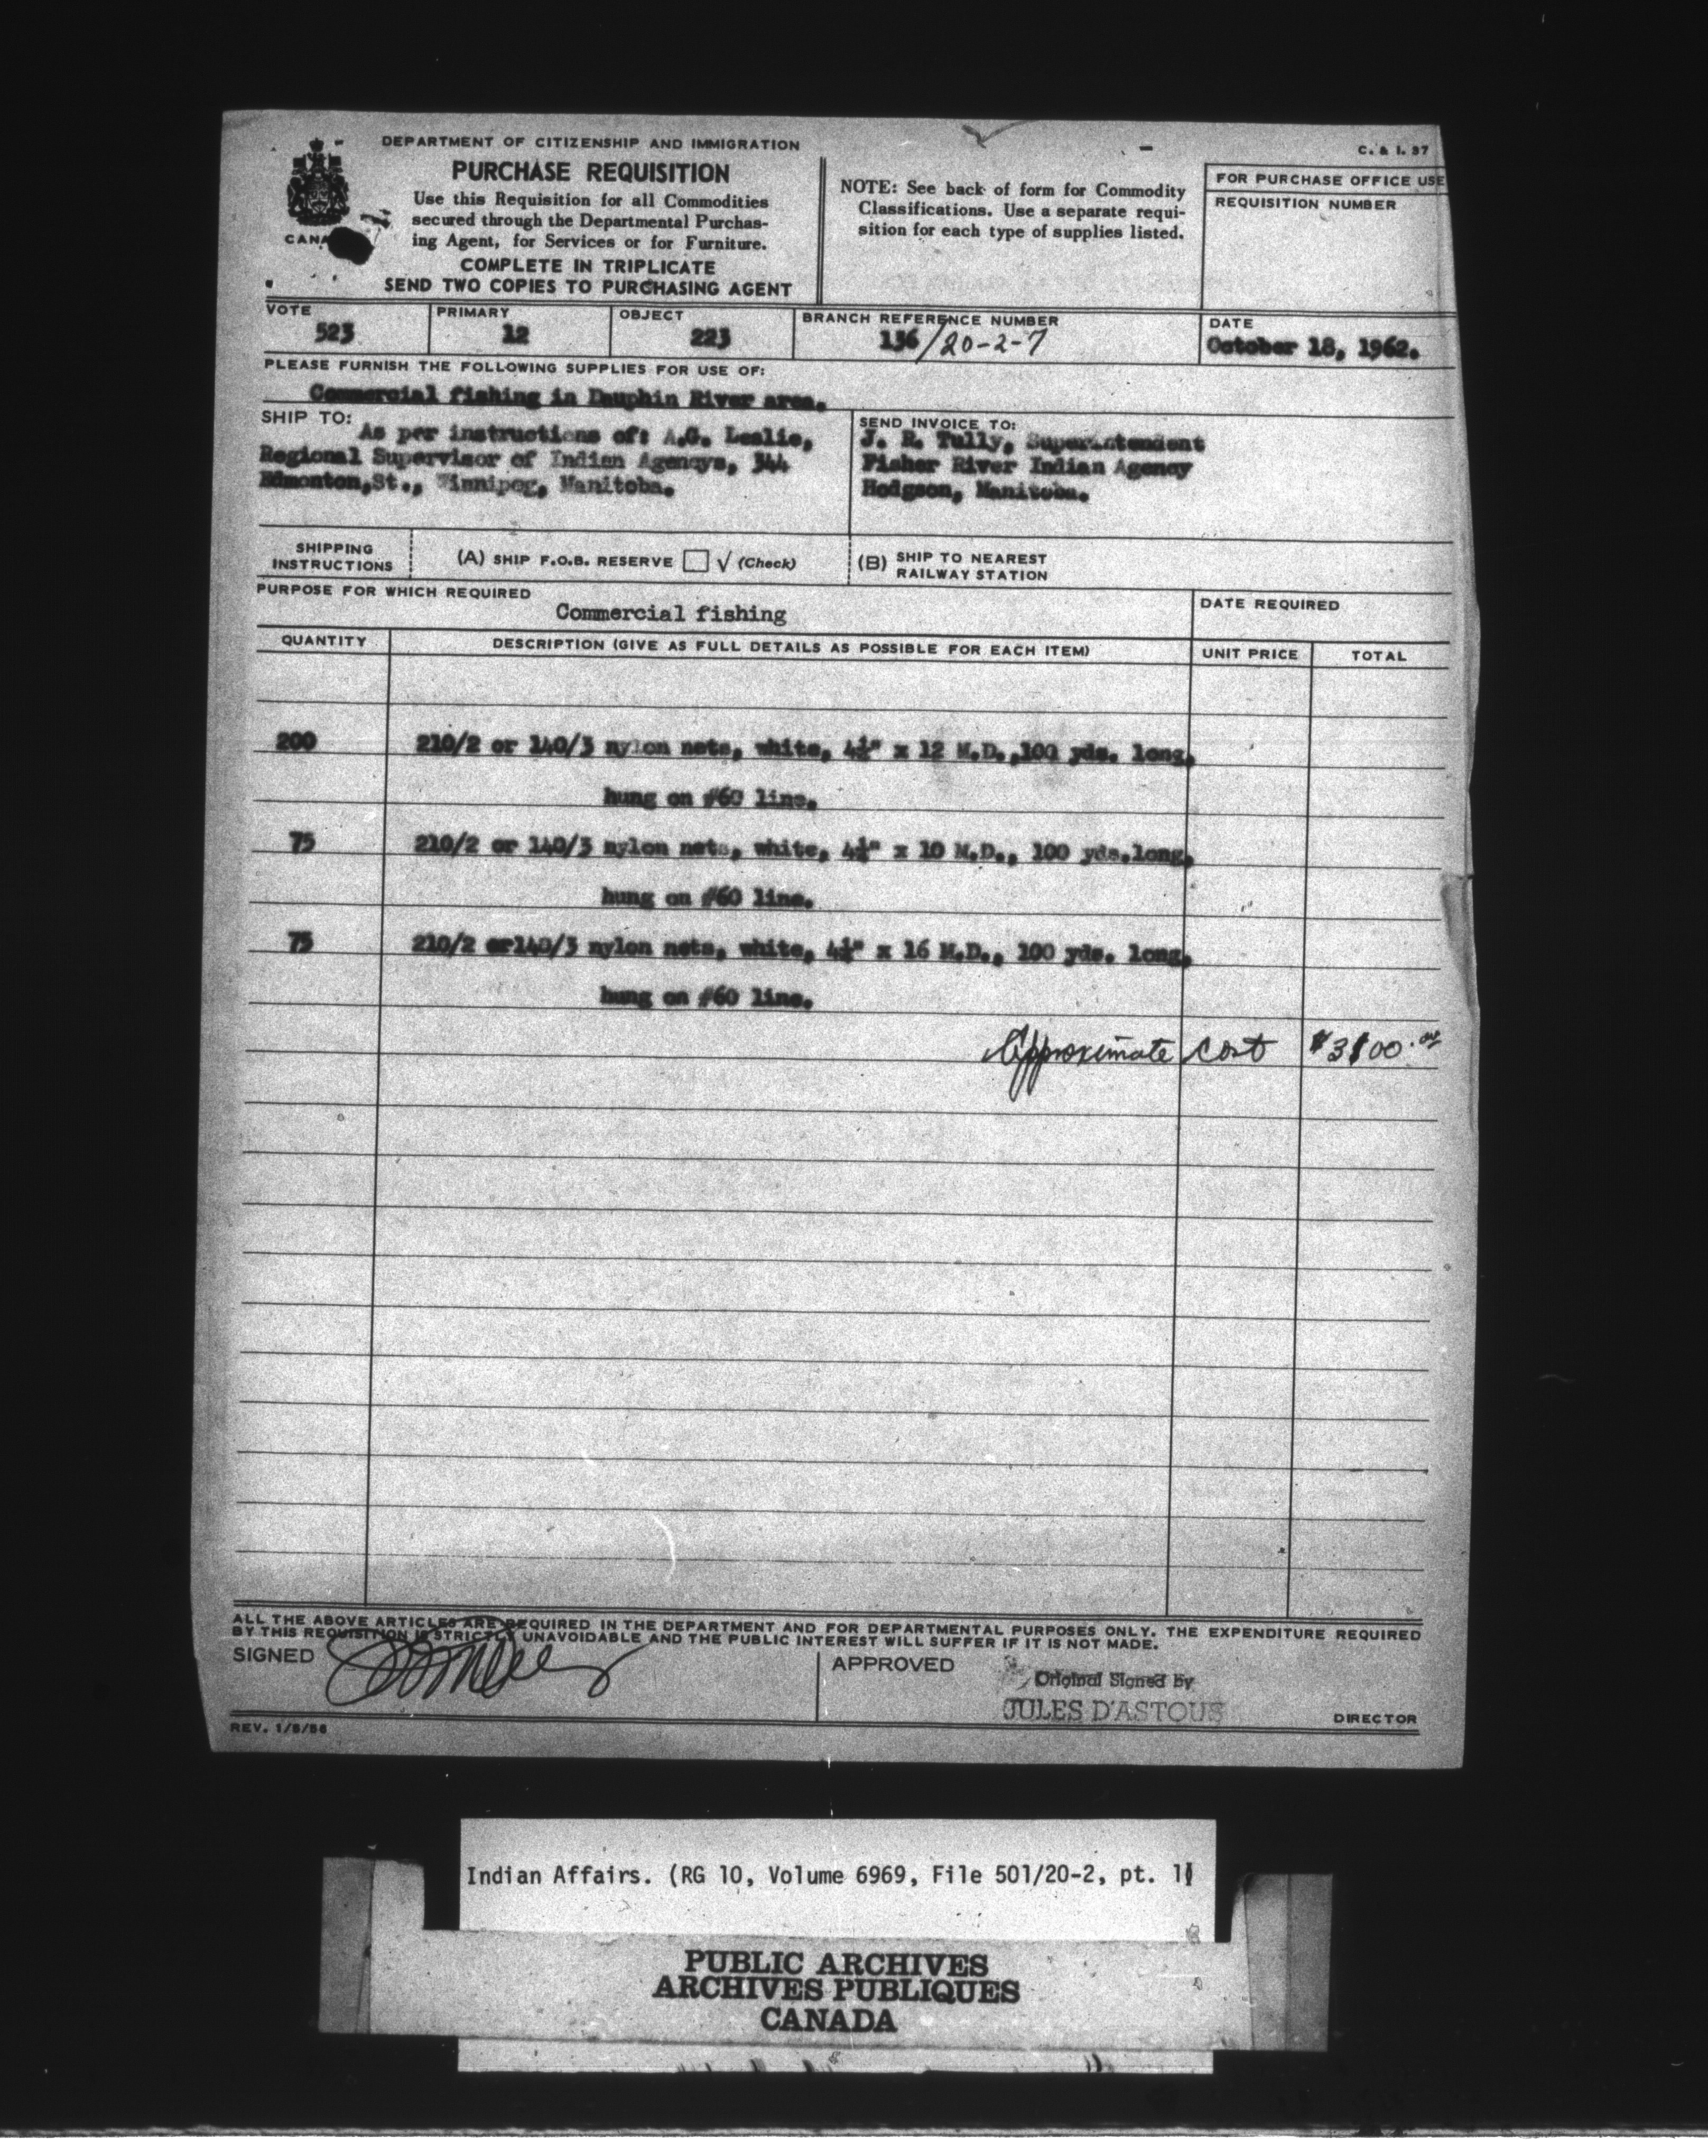 DEPARTMENT OF CITIZENSHIP AND IMMIGRATION
PURCHASE REQUISITION
Use this Requisition for all Commodities
secured through the Departmental Purchas-
ing Agent, for Services or for Furniture.
COMPLETE IN TRIPLICATE
SEND TWO COPIES TO PURCHASING AGENT
CANA
NOTE: See back of form for Commodity
Classifications. Use a separate requi-
sition for each type of supplies listed.
C. & I. 37
FOR PURCHASE OFFICE USE
REQUISITION NUMBER
VOTE PRIMARY OBJECT BRANCH REFERENCE NUMBER DATE
523 12 223 136/20-2-7 October 18, 1962.
PLEASE FURNISH THE FOLLOWING SUPPLIES FOR USE OF:
Commercial fishing in Dauphin River area.
SHIP TO:
As per instructions of: A.G. Leslie,
Regional Supervisor of Indian Agencys, 344
Edmonton,St., Winnipeg, Manitoba.
SEND INVOICE TO:
J. R. Tully, Superintendent
Fisher River Indian Agency
Hodgson, Manitoba.
SHIPPING
INSTRUCTIONS
(A) SHIP F.O.B. RESERVE √ (Check)
(B) SHIP TO NEAREST
RAILWAY STATION
PURPOSE FOR WHICH REQUIRED
Commercial fishing
DATE REQUIRED
QUANTITY DESCRIPTION (GIVE AS FULL DETAILS AS POSSIBLE FOR EACH ITEM) UNIT PRICE TOTAL
200 210/2 or 140/3 nylon nets, white, 4¼" x 12 M.D.,100 yds. long,
hung on #60 line.
75 210/2 or 140/3 nylon nets, white, 4¼" x 10 M.D., 100 yds.long,
hung on #60 line.
75 210/2 or140/3 nylon nets, white, 4¼" x 16 M.D., 100 yds. long,
hung on #60 line.
Approximate cost $3100.00
ALL THE ABOVE ARTICLES ARE REQUIRED IN THE DEPARTMENT AND FOR DEPARTMENTAL PURPOSES ONLY. THE EXPENDITURE REQUIRED
BY THIS REQUISITION IS STRICTLY UNAVOIDABLE AND THE PUBLIC INTEREST WILL SUFFER IF IT IS NOT MADE.
SIGNED
APPROVED
Original Signed by
JULES D'ASTOUS
DIRECTOR
REV. 1/5/56
Indian Affairs. (RG 10, Volume 6969, File 501/20-2, pt. 1)
PUBLIC ARCHIVES
ARCHIVES PUBLIQUES
CANADA